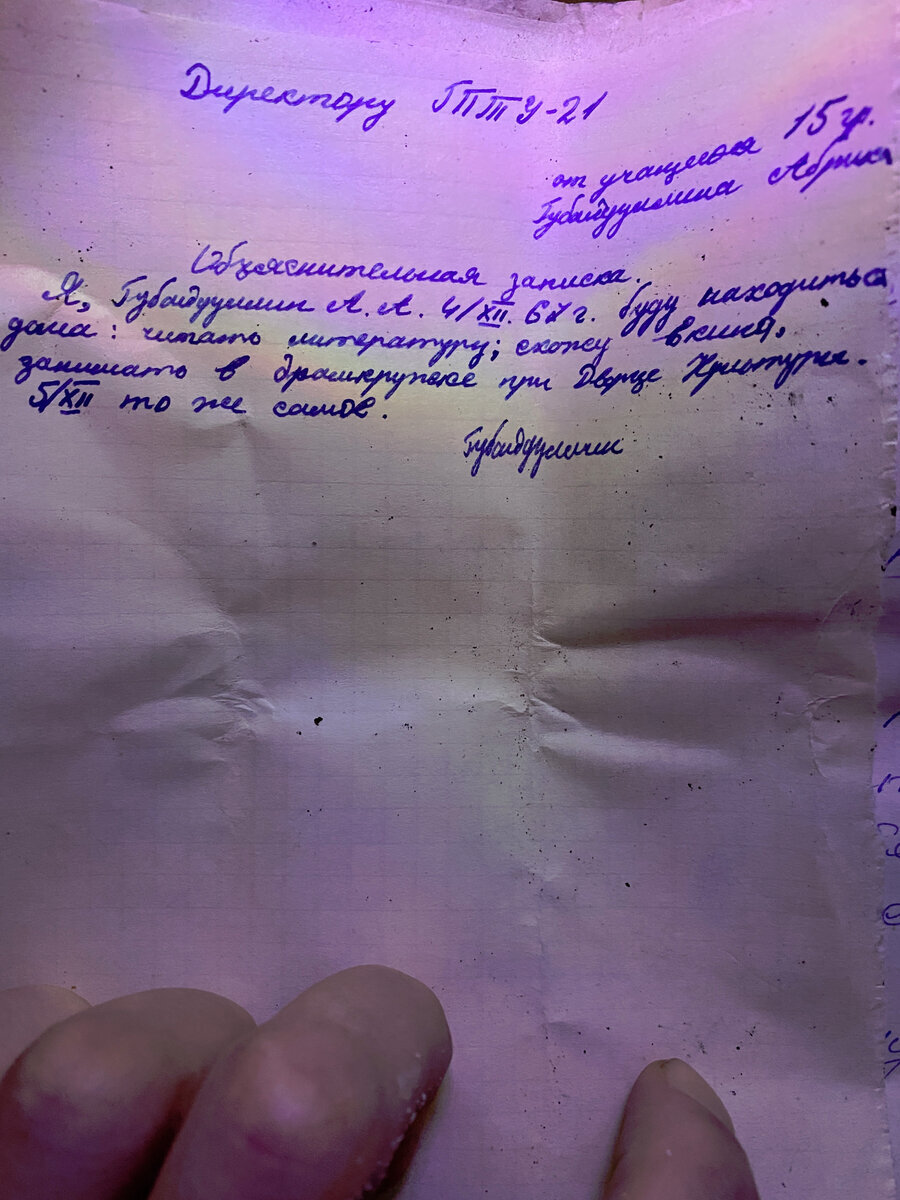 Директору ГПТУ-21
от учащегося 15 гр.
Губайдуллина
Объяснительная записка.
Я, Губайдуллин А. А. 4/XII. 67 г. буду находиться
дома: читать литературу; схожу в кино,
занимать в драмкружке при Дворце Культуры.
5/XII то же самое.
Губайдуллин